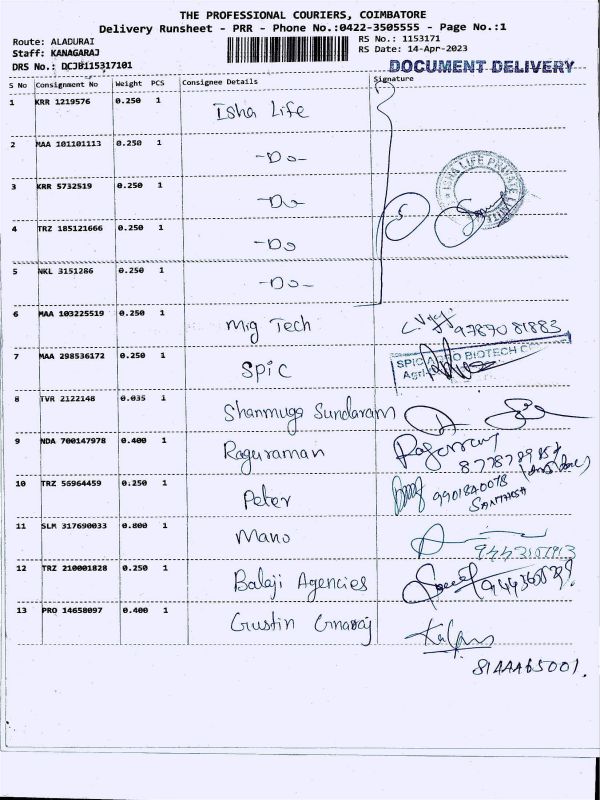 THE PROFESSIONAL COURIERS, COIMBATORE
Delivery Runsheet - PRR - Phone No.:0422-3505555 - Page No.:1
Route: ALADURAI RS No.: 1153171
Staff: KANAGARAJ RS Date: 14-Apr-2023
DRS No.: DCJB115317101 DOCUMENT DELIVERY
S No Consignment No Weight PCS Consignee Details Signature
1 KRR 1219576 0.250 1 Isha Life
2 MAA 101101113 0.250 1 -Do-
3 KRR 5732519 0.250 1 -Do-
ISHA LIFE PRIVATE LIMITED
5
4 TRZ 185121666 0.250 1 -Do-
5 NKL 3151286 0.250 1 -Do-
6 MAA 103225519 0.250 1 Mig Tech 9787081883
7 MAA 298536172 0.250 1 SPIC
SPIC AGRO BIOTECH
8 TVR 2122148 0.035 1 Shanmuga Sundaram
9 NDA 700147978 0.400 1 Raguraman
10 TRZ 56964459 0.250 1 Peter 9901840078
SANTHOSH
11 SLM 317690033 0.800 1 Mano
12 TRZ 210001828 0.250 1 Balaji Agencies
13 PRO 14658097 0.400 1 Gustin